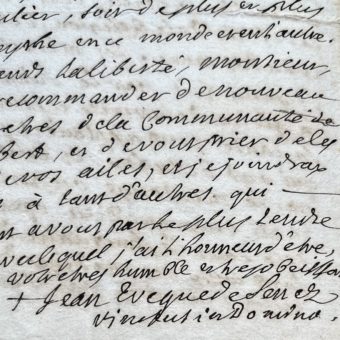 ulier, soit de plus en plus
en ce monde et en l'autre.
la liberté, monsieur,
recommander de nouveau
de la Communauté de
et de vous prier de les
vos ailes, et je joindrax
à tant d'autres qui
a vous par le plus tendre
lequel j'ai l'honneur d'être,
votre tres humble et tres obeissan
+ Jean Eveque de Senez
vinctus in Domino.